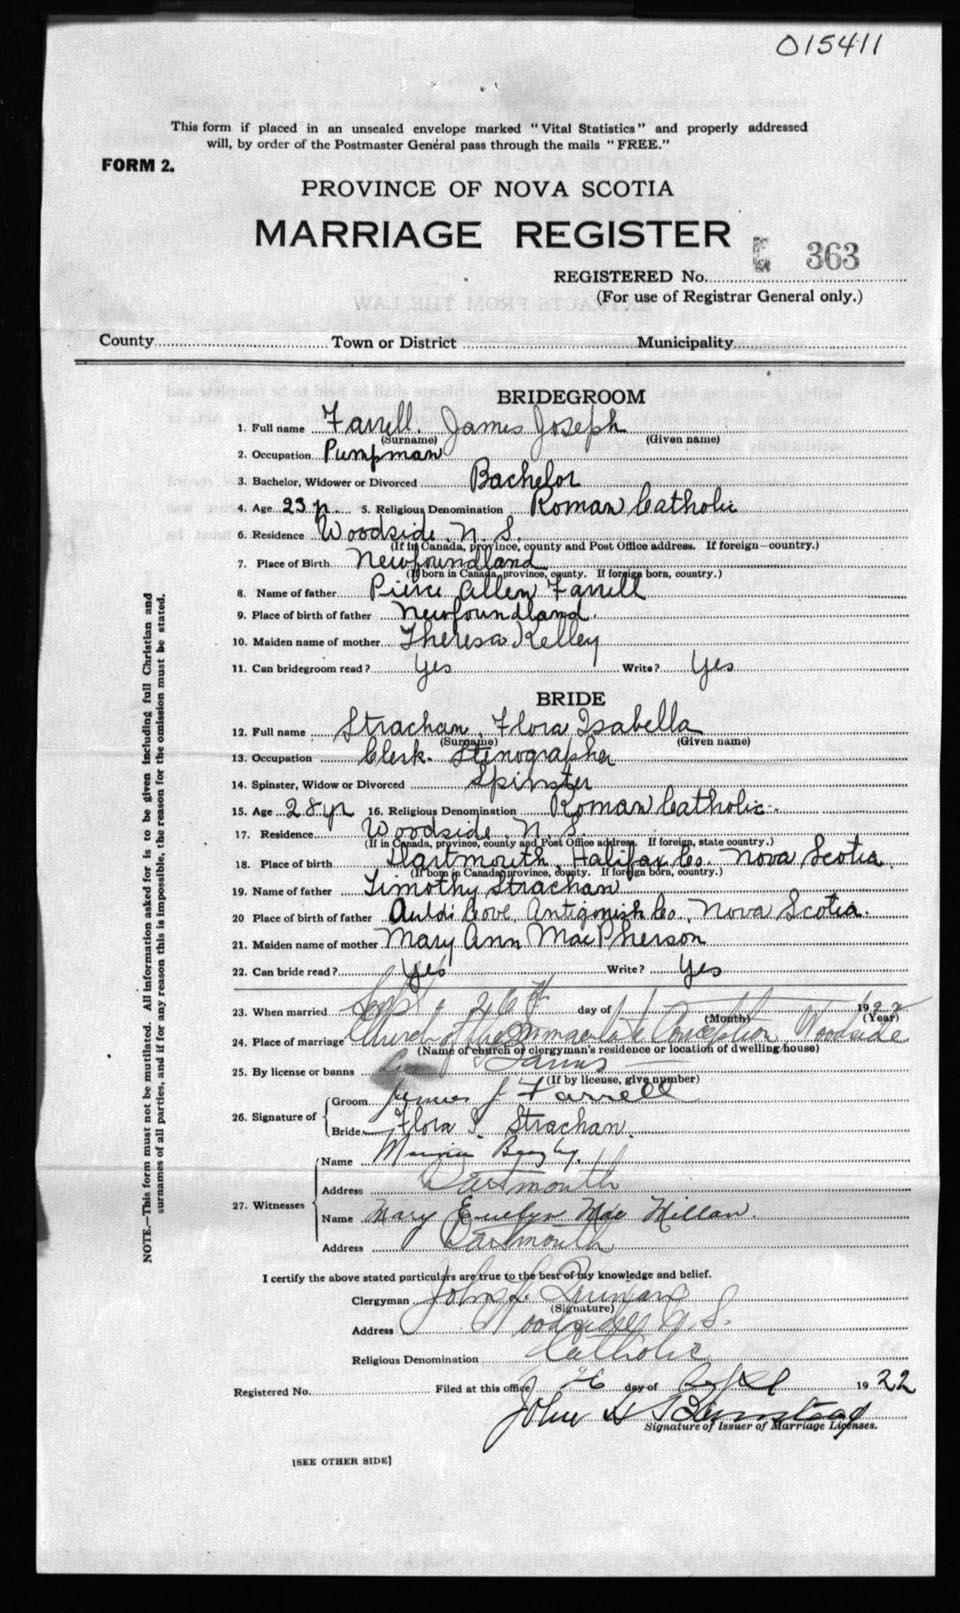 015411
This form if placed in an unsealed envelope marked "Vital Statistics" and properly addressed
will, by order of the Postmaster General pass through the mails "FREE."
FORM 2.
PROVINCE OF NOVA SCOTIA
MARRIAGE REGISTER
363
REGISTERED No.
(For use of Registrar General only.)
County Town or District Municipality
BRIDEGROOM
1. Full name Farrell. James Joseph
(Surname) (Given name)
2. Occupation Pumpman
3. Bachelor, Widower or Divorced Bachelor
4. Age 23 yr 5. Religious Denomination Roman Catholic
6. Residence Woodside, N. S.
(If in Canada, province, county and Post Office address. If foreign—country.)
7. Place of Birth Newfoundland
(If born in Canada, province, county. If foreign born, country.)
8. Name of father Pierce Allen Farrell
9. Place of birth of father Newfoundland.
10. Maiden name of mother Theresa Kelley
11. Can bridegroom read? Yes Write? Yes
BRIDE
12. Full name Strachan, Flora Isabella
(Surname) (Given name)
13. Occupation Clerk. Stenographer
14. Spinster, Widow or Divorced Spinster
15. Age 28 yr 16. Religious Denomination Roman Catholic.
17. Residence Woodside, N. S.
(If in Canada, province, county and Post Office address. If foreign, state country.)
18. Place of birth Dartmouth, Halifax Co. Nova Scotia.
(If born in Canada, province, county. If foreign born, country.)
19. Name of father Timothy Strachan
20 Place of birth of father Auld's Cove, Antigonish Co, Nova Scotia.
21. Maiden name of mother Mary Ann MacPherson
22. Can bride read? Yes Write? Yes
23. When married Sept. 26th day of 1922
(Month) (Year)
24. Place of marriage Church of the Immaculate Conception Woodside
(Name of church or clergyman's residence or location of dwelling house)
25. By license or banns Banns
(If by license, give number)
26. Signature of Groom James J Farrell
Bride Flora I. Strachan.
27. Witnesses Name
Address Dartmouth
Name Mary Evelyn MacMillan.
Address Dartmouth
I certify the above stated particulars are true to the best of my knowledge and belief.
Clergyman John L. Quinan
(Signature)
Address Woodside N. S.
Religious Denomination Catholic
Registered No. Filed at this office 26 day of Sept 1922
John
Signature of Issuer of Marriage Licenses.
[SEE OTHER SIDE]
NOTE.—This form must not be mutilated. All information asked for is to be given including full Christian and
surnames of all parties, and if for any reason this is impossible, the reason for the omission must be stated.